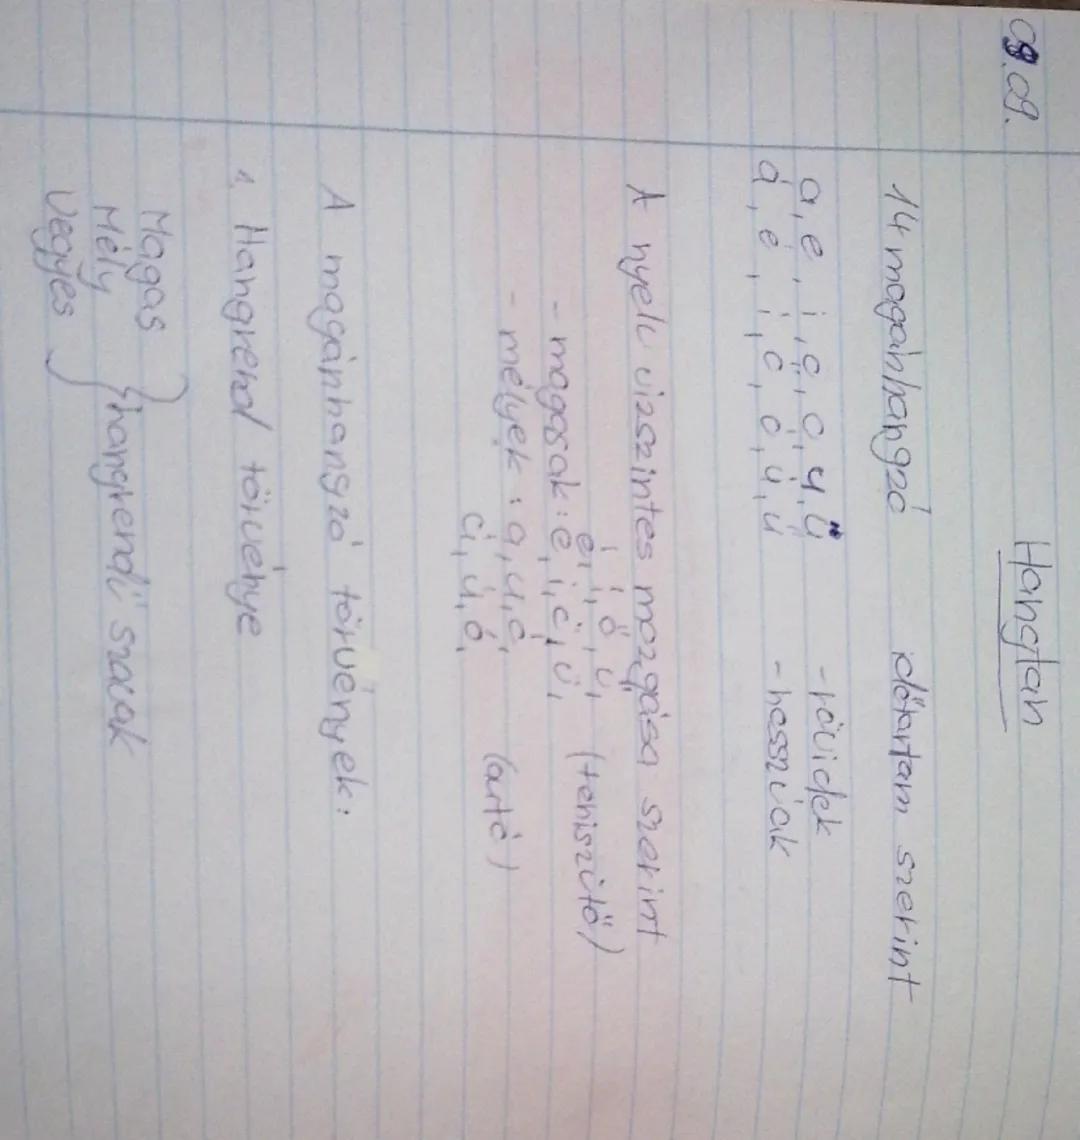 09.09.
Hangtan
14 magánhangzó időtartam szerint
a, e, i, o, ö, u, ü - rövidek
á, é, í, ó, ő, ú, ű - hosszúak
A nyelv vízszintes mozgása szerint
é, í, ő, ű, (teniszütő)
- magasak: e, i, ö, ü,
- mélyek: a, u, o, (autó)
á, ú, ó,
A magánhangzó törvények:
1. Hangrend törvénye
Magas
Mély } hangrendű szavak
Vegyes